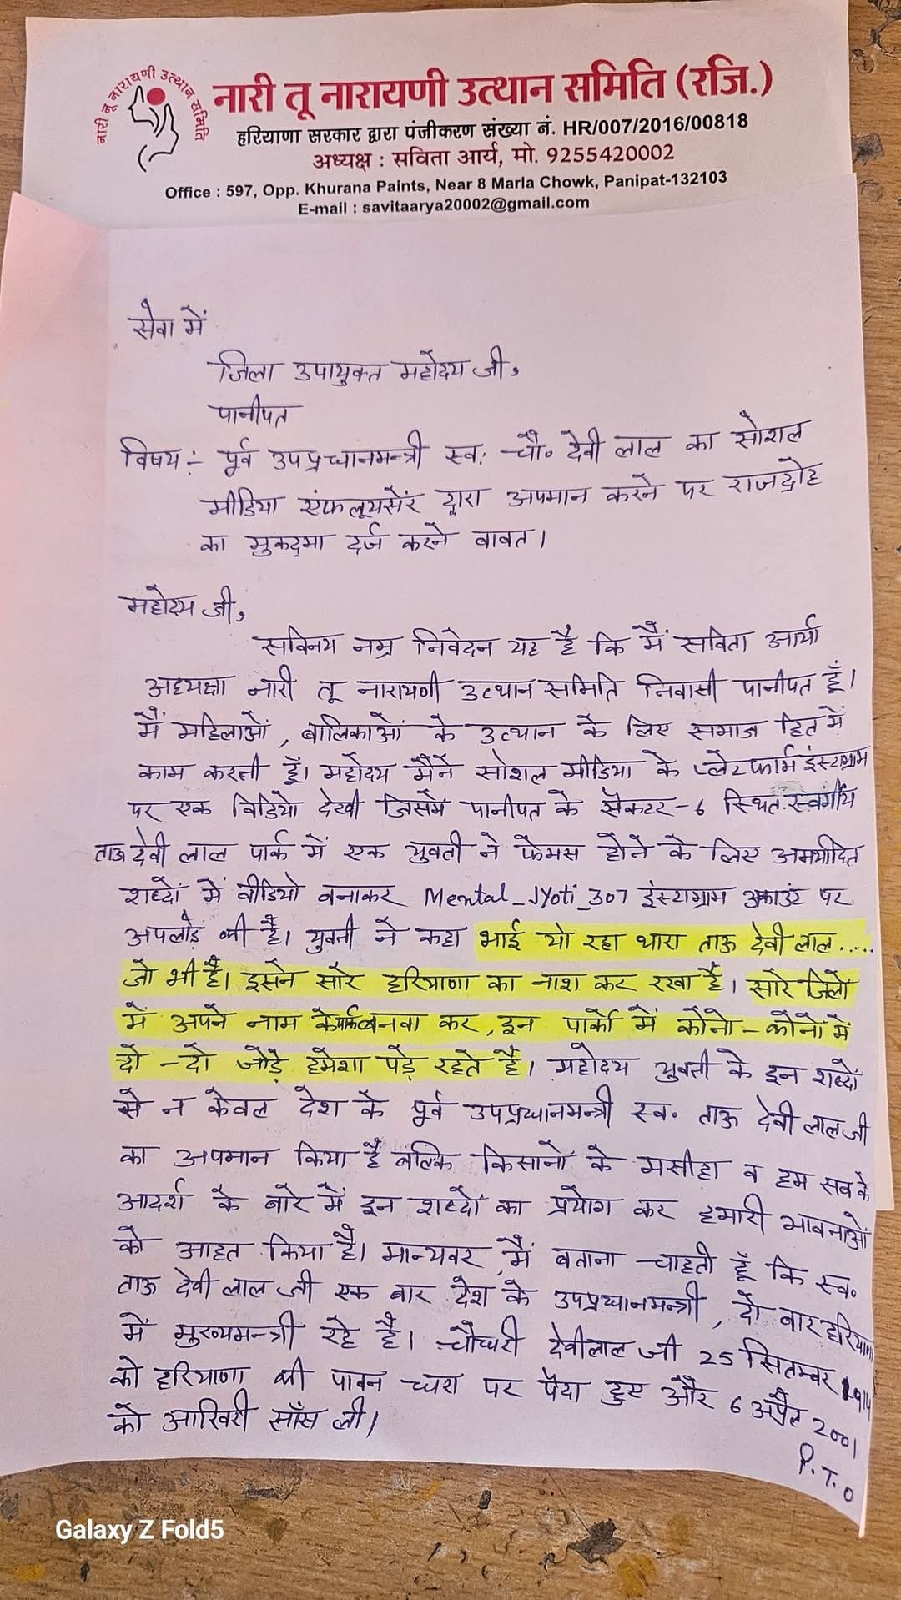 नारी तू नारायणी उत्थान समिति
नारी तू नारायणी उत्थान समिति (रजि.)
हरियाणा सरकार द्वारा पंजीकरण संख्या नं. HR/007/2016/00818
अध्यक्ष : सविता आर्य, मो. 9255420002
Office : 597, Opp. Khurana Paints, Near 8 Marla Chowk, Panipat-132103
E-mail : savitaarya20002@gmail.com
सेवा में
जिला उपायुक्त महोदय जी,
पानीपत
विषय :- पूर्व उपप्रधानमन्त्री स्व: चौ॰ देवी लाल का सोशल
मीडिया एंफलूयसेंर द्वारा अपमान करने पर राजद्रोह
का मुकदमा दर्ज करने वावत।
महोदय जी,
सविनय नम्र निवेदन यह है कि मैं सविता आर्या
अध्यक्षा नारी तू नारायणी उत्थान समिति निवासी पानीपत हूँ।
मैं महिलाओं, बालिकाओं के उत्थान के लिए समाज हित में
काम करती हूँ। महोदय मैंने सोशल मीडिया के प्लेटफार्म इंस्टाग्राम
पर एक विडियो देखी जिसमें पानीपत के सैक्टर-6 स्थित स्वर्गीय
ताऊ देवी लाल पार्क में एक युवती ने फेमस होने के लिए अमर्यादित
शब्दों में वीडियो बनाकर Mental_Jyoti_307 इंस्टाग्राम अकाउंट पर
अपलोड की है। युवती ने कहा भाई यो रहा थारा ताऊ देवी लाल.....
जो भी है। इसने सारे हरियाणा का नाश कर रखा है। सारे जिलों
में अपने नाम के पार्क बनवा कर, इन पार्को में कौनो-कौनो में
दो-दो जोड़े हमेशा पड़े रहते है। महोदय युवती के इन शब्दों
से न केवल देश के पूर्व उपप्रधानमन्त्री स्व॰ ताऊ देवी लाल जी
का अपमान किया है बल्कि किसानों के मसीहा व हम सब के
आदर्श के बारे में इन शब्दों का प्रयोग कर हमारी भावनाओं
को आहत किया है। मान्यवर, मैं बताना चाहती हूँ कि स्व॰
ताऊ देवी लाल जी एक बार देश के उपप्रधानमन्त्री, दो बार हरियाणा
में मुख्यमन्त्री रहे है। चौधरी देवीलाल जी 25 सितम्बर 1914
को हरियाणा की पावन धरा पर पैदा हुए और 6 अप्रैल 2001
को आखिरी साँस ली।
P.T.O
Galaxy Z Fold5